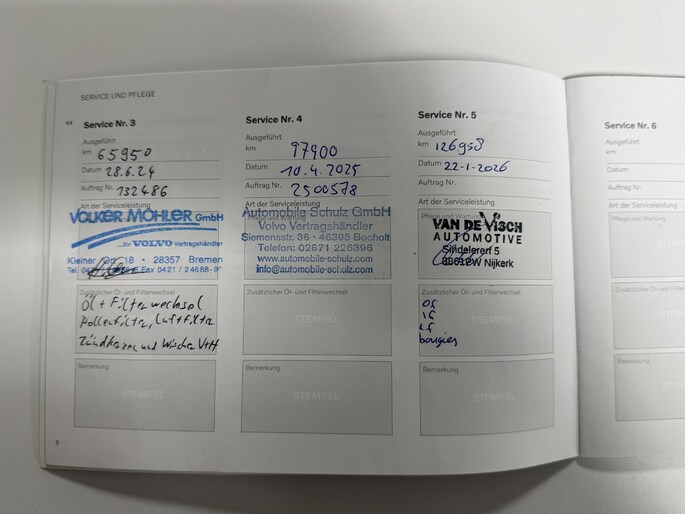 SERVICE UND PFLEGE
Service Nr. 3
Ausgeführt
km 65950
Datum 28.6.24
Auftrag Nr. 132486
Art der Serviceleistung
VOLKER MÖHLER GmbH
...Ihr VOLVO Vertragshändler
18 • 28357 Bremen
Fax 0421 / 24688-9
Zusätzlicher Öl- und Filterwechsel
Öl + Filterwechsel
Pollenfilter, Luftfilter
Zündkerzen und Wischer V+H
Bemerkung
8
Service Nr. 4
Ausgeführt
km 97900
Datum 10.4.2025
Auftrag Nr. 2500578
Art der Serviceleistung
Automobile Schulz GmbH
Volvo Vertragshändler
Siemensstr. 36 - 46395 Bocholt
Telefon: 02871 226366
www.automobile-schulz.com
info@automobile-schulz.com
Zusätzlicher Öl- und Filterwechsel
STEMPEL
Bemerkung
STEMPEL
Service Nr. 5
Ausgeführt
km 126958
Datum 22-1-2026
Auftrag Nr.
Art der Serviceleistung
Pflege und Wartung
VAN DE VISCH
AUTOMOTIVE
Nijkerk
Zusätzlicher Öl- und Filterwechsel
STEMPEL
of
if
lf
bougies
Bemerkung
STEMPEL
Service Nr. 6
Ausgeführt
km
Datum
Auftrag Nr.
Art der Serviceleistung
Pflege und Wartung
Zusätzlicher Öl-
Bemerkung